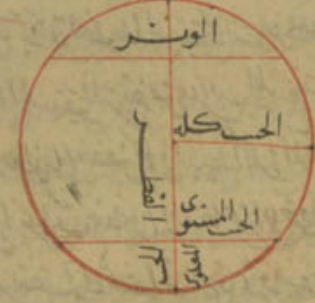 الوتر
الجيب كله
القطر
الجيب المستوى
الجيب
المعكوس